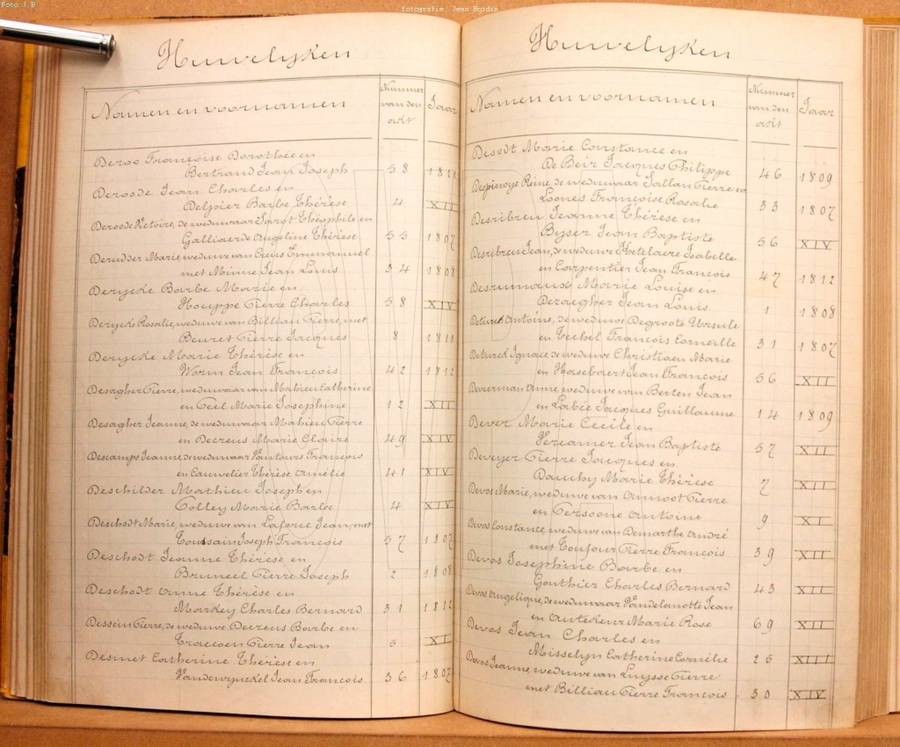 Foto: J B
fotografie: Jean
Huwelijken
Namen en voornamen
Nummer van den akt
Jaar
Deroo Françoise Dorothée en
Bertrand Jean Joseph 58
Deroode Jean Charles en
Delpier Barbe Thérèse 4 XII
Deroode Victoire, de weduwaar Théophile en
Galliaerde Angeline Thérèse 55 1807
Derudder Marie, weduwe van Emmanuel
met Minne Jean Louis 34 1808
Derycke Barbe Marie en
Houppe Pierre Charles 58 XIV
Derycke Rosalie, weduwe van Billiau Pierre, met
Beuret Pierre Jacques 8
Derycke Marie Thérèse en
Worm Jean François 42 1812
Desagher Pierre, weduwaar van Mahieu Catherine
en Teel Marie Josephine 12 XII
Desagher Jeanne, de weduwaar Mahieu Pierre
en Decreus Marie Claire 49 XIV
Descamps Jeanne, de weduwaar François
en Cauwelier Thérèse Amélie 41 XIV
Deschilder Mathieu Joseph en
Colley Marie Barbe 4 XIV
Deschodt Marie, weduwe van Laforce Jean, met
Toussain Joseph François 57 1807
Deschodt Jeanne Thérèse en
Bruneel Pierre Joseph 2 1808
Deschodt Anne Thérèse en
Markey Charles Bernard 31 1812
Dessein Pierre, de weduwe Decreus Barbe en
Pierre Jean XI
Desmet Catherine Thérèse en
Vandewynckel Jean François 36 1807
Huwelijken
Namen en voornamen
Nummer van den akt
Jaar
Desodt Marie Constance en
De Beir Jacques Philippe 46 1809
Despinoye Reine, de weduwaar Pierre en
Looneis Françoise Rosalie 33 1807
Desribreu Jeanne Thérèse en
Byser Jean Baptiste 56 XIV
Desribreu Jean, de weduwe Hotelaere Isabelle
en Carpentier Jean François 47 1812
Desrumaux Marie Louise en
Deraegher Jean Louis 1 1808
Deturck Antoine, de weduwe Degroote Ursule
en François Corneille 31 1807
Deturck Ignace de weduwe Christiaen Marie
en Hasebaert Jean François 56 XII
Deverman Anne, weduwe van Berten Jean
en Labée Jacques Guillaume 14 1809
Dever Marie Cecile en
Jean Baptiste 57 XII
Deveyer Pierre Jacques en
Dauchy Marie Thérèse 7 XII
Devos Marie, weduwe van Ammoot Pierre
en Persoone Antoine 9 XI
Devos Constance, weduwe van Demarthe André
met Toufour Pierre François 39 XII
Devos Josephine Barbe en
Gonthier Charles Bernard 43 XII
Devos Angelique, de weduwaar Vandelanotte Jean
en Marie Rose 69 XII
Devos Jean Charles en
Misselyn Catherine Cornélie 25 XIII
Devos Jeanne, weduwe van Luysse Pierre
met Billiau Pierre François 30 XIV